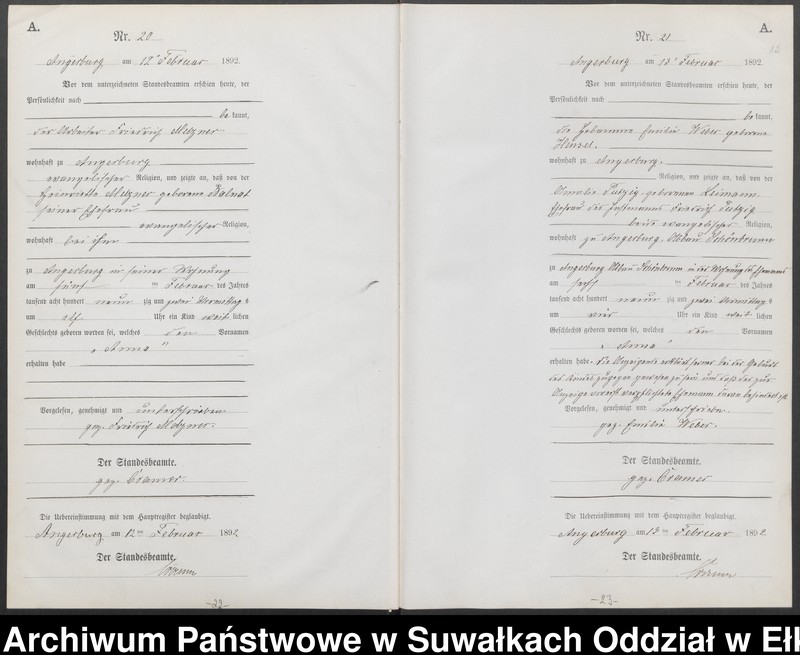 A.
Nr. 20
Angerburg am 12ᵗ Februar 1892.
Vor dem unterzeichneten Standesbeamten erschien heute, der
Persönlichkeit nach
be kannt,
der Arbeiter Friedrich Metzner
wohnhaft zu Angerburg
evangelischer Religion, und zeigte an, daß von der
Henriette Metzner geborene
seiner Ehefrau
evangelischer Religion,
wohnhaft bei ihm
zu Angerburg in seiner Wohnung
am fünf ten Februar des Jahres
tausend acht hundert neun zig und zwei Vormittag s
um elf Uhr ein Kind weib lichen
Geschlechts geboren worden sei, welches den Vornamen
„Anna"
erhalten habe
Vorgelesen, genehmigt und unterschrieben
gez. Friedrich Metzner.
Der Standesbeamte.
gez. Cramer.
Die Uebereinstimmung mit dem Hauptregister beglaubigt.
Angerburg am 12ten Februar 1892
Der Standesbeamte.
Cramer
-22-
A.
Nr. 21
Angerburg am 13ᵗ Februar 1892.
Vor dem unterzeichneten Standesbeamten erschien heute, der
Persönlichkeit nach
be kannt,
die Hebamme Emilie Weber geborene
Hensel.
wohnhaft zu Angerburg.
Religion, und zeigte an, daß von der
Amalie Putzig geborenen Leimann
Ehefrau des Friedrich Putzig
beide evangelischer Religion,
wohnhaft zu Angerburg, Abbau Schönbrunn
zu Angerburg Abbau Schönbrunn in der Wohnung des Ehemanns
am sechs ten Februar des Jahres
tausend acht hundert neun zig und zwei Vormittag s
um vier Uhr ein Kind weib lichen
Geschlechts geboren worden sei, welches den Vornamen
„Anna"
erhalten habe. Die Anzeigende erklärt ferner bei der Geburt
des Kindes zugegen gewesen zu sein und daß der zur
Anzeige verpflichtete Ehemann daran behindert ist
Vorgelesen, genehmigt und unterschrieben.
gez. Emilie Weber.
Der Standesbeamte.
gez. Cramer
Die Uebereinstimmung mit dem Hauptregister beglaubigt.
Angerburg am 13ten Februar 1892
Der Standesbeamte.
Cramer
-23-
Archiwum Państwowe w Suwałkach Oddział w Ełk